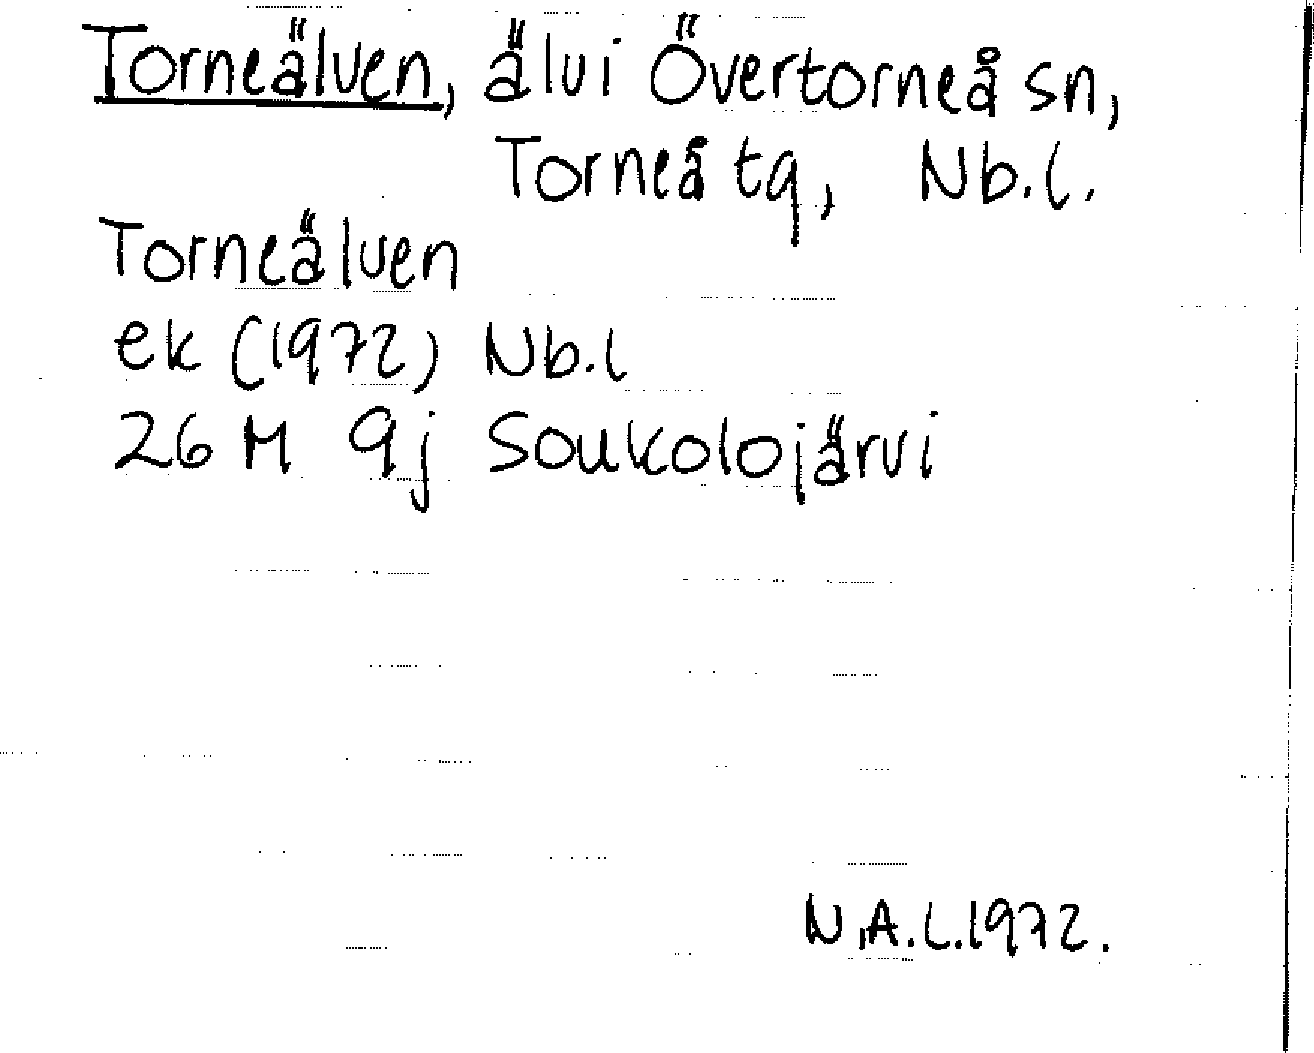 Torneälven, älv i Övertorneå sn,
Torneå tg, Nb.l.
Torneälven
ek (1972) Nb.l
26 M 9j Soukolojärvi
N.A.L.1972.